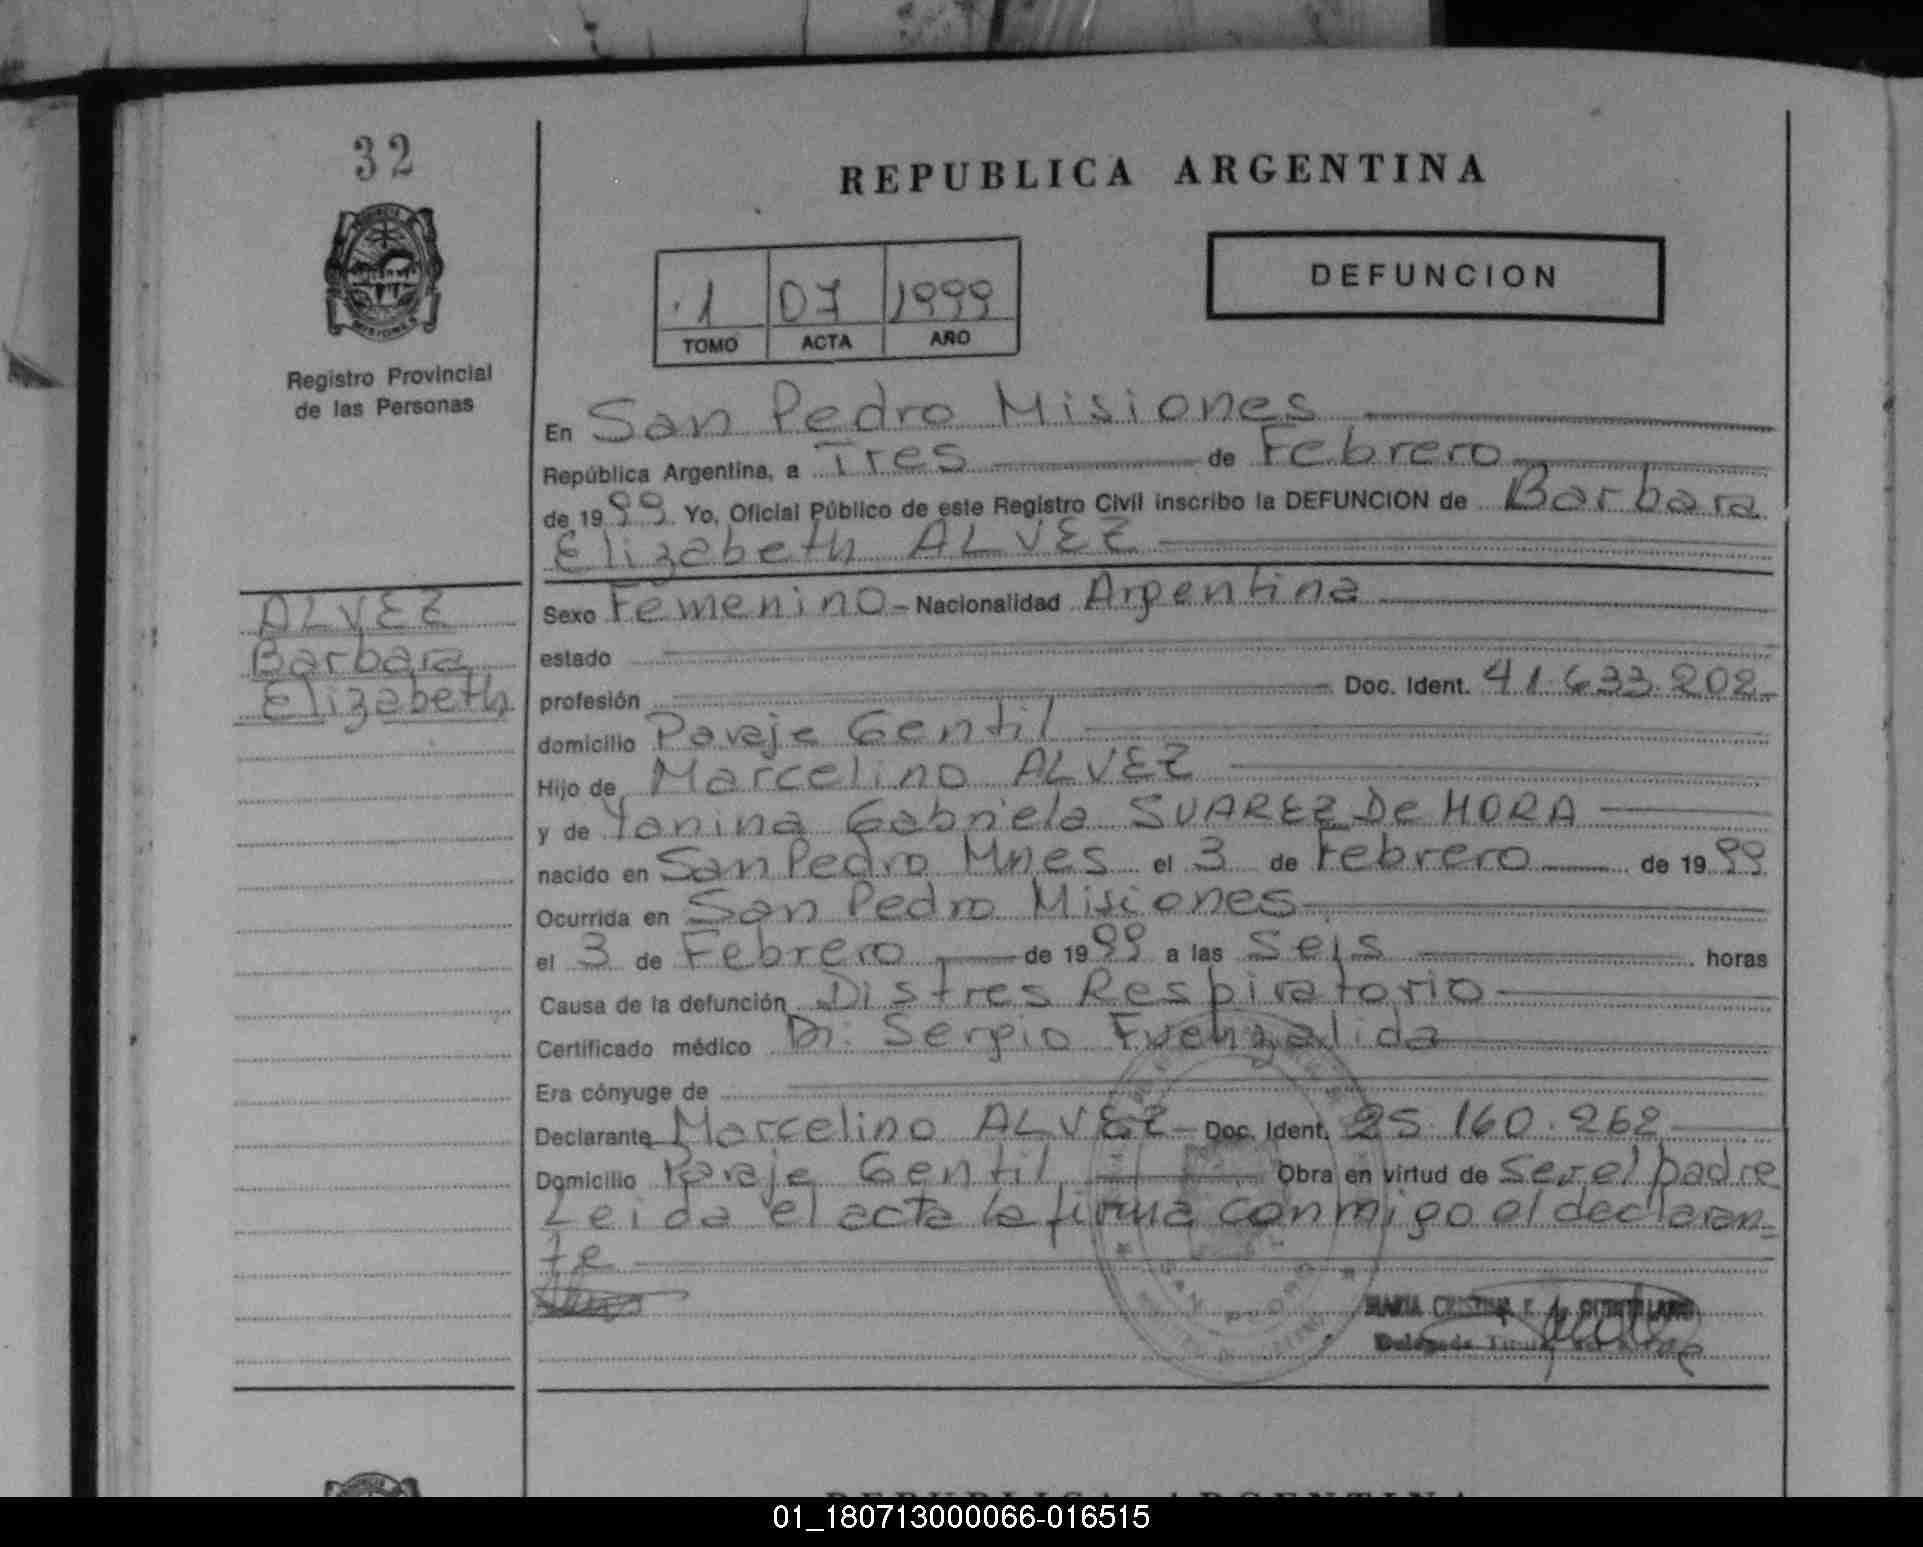 32
REPUBLICA ARGENTINA
1 07 1999
TOMO ACTA AÑO
DEFUNCION
Registro Provincial
de las Personas
En San Pedro Misiones
República Argentina, a Tres de Febrero
de 1999 Yo, Oficial Público de este Registro Civil inscribo la DEFUNCION de Barbara
Elizabeth ALVEZ
ALVEZ
Barbara
Elizabeth
Sexo Femenino - Nacionalidad Argentina
estado
profesión Doc. Ident. 41.633.202
domicilio Paraje Gentil
Hijo de Marcelino ALVEZ
y de Yanina Gabriela SUAREZ De MORA
nacido en San Pedro Mnes el 3 de Febrero de 1999
Ocurrida en San Pedro Misiones
el 3 de Febrero de 1999 a las Seis horas
Causa de la defunción Distres Respiratorio
Certificado médico Dr. Sergio Fuenzalida
Era cónyuge de
Declarante Marcelino ALVEZ - Doc. Ident. 25.160.262
Domicilio Paraje Gentil Obra en virtud de Ser el padre
Leida el acta la firma conmigo el declaran=
te
MARIA CRISTINA
01_180713000066-016515